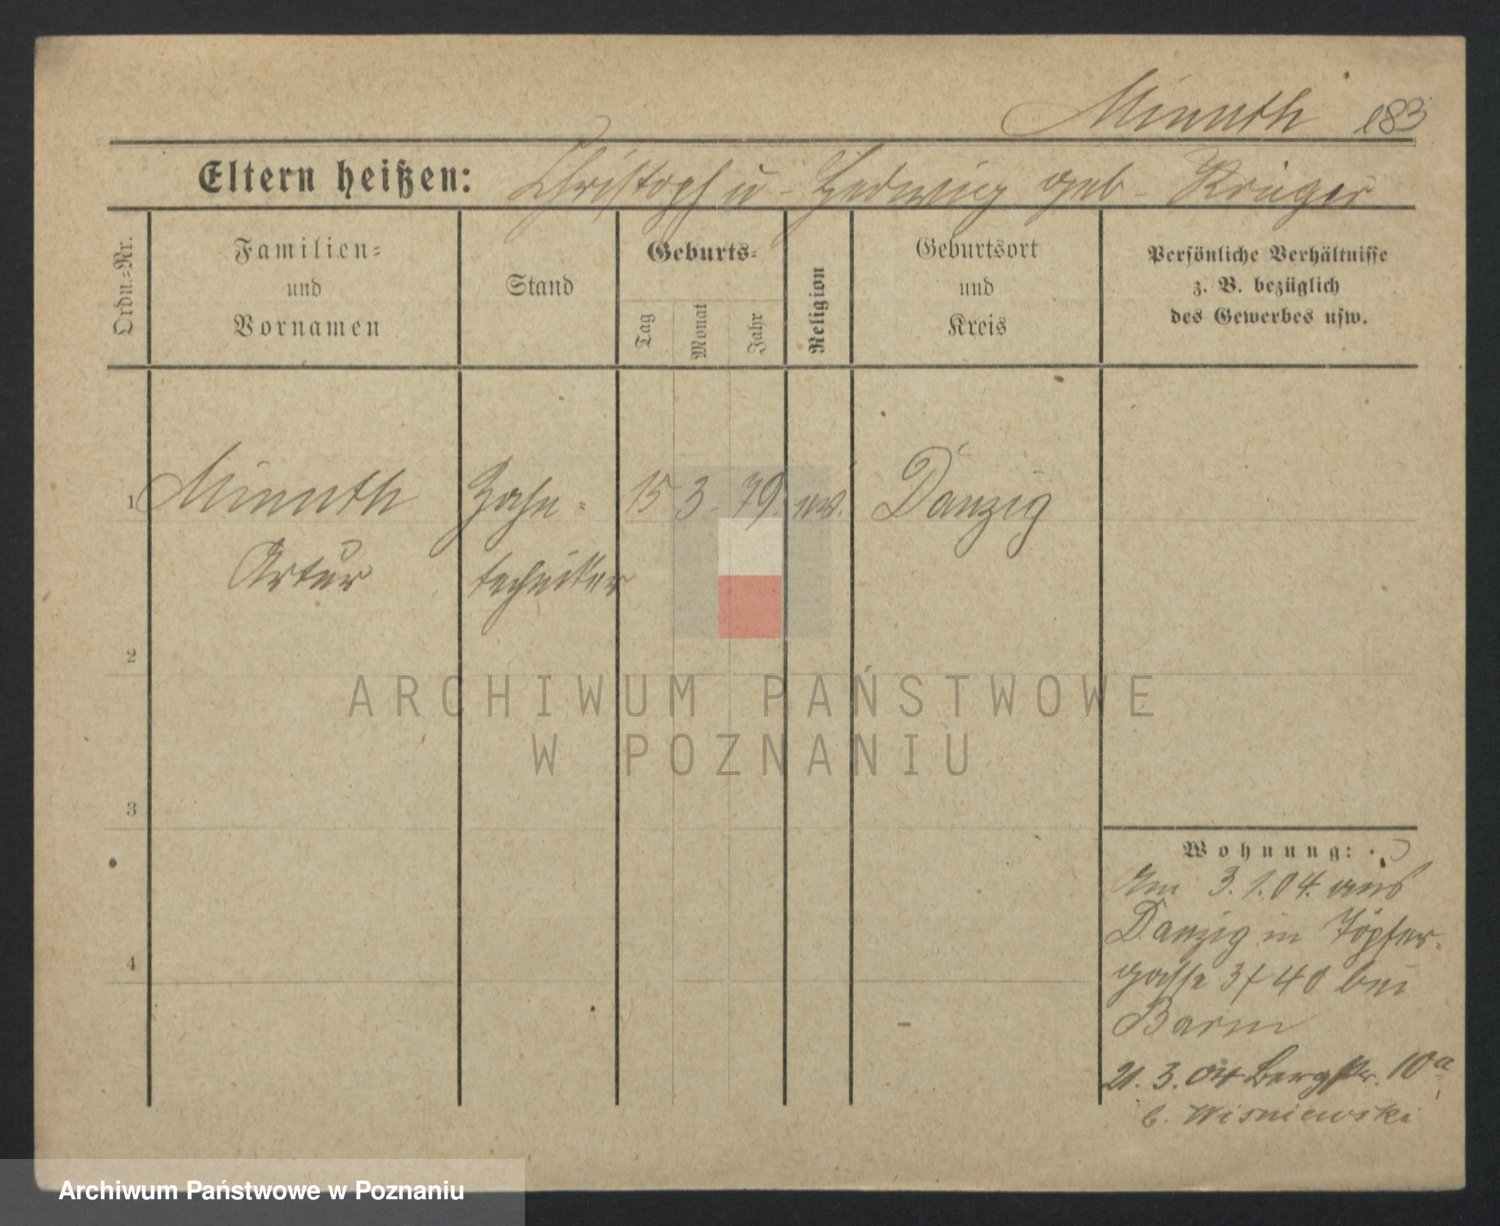 Minuth 183
Eltern heißen: Christoph u. Hedwig geb. Krüger
Ordn.=Nr.
Familien=
und
Vornamen
Stand
Geburts=
Tag
Monat
Jahr
Religion
Geburtsort
und
Kreis
Persönliche Verhältnisse
z. B. bezüglich
des Gewerbes usw.
1 Minuth Zahn= 15 3. 79. ev. Danzig
Artur techniker
2
3
4
Wohnung:
Am 3.1.04. aus
Danzig in Töpfer-
gasse 3 bei
Barm
21. 3. 04 Bergstr. 10a
b. Wisniewski
ARCHIWUM PAŃSTWOWE
W POZNANIU
Archiwum Państwowe w Poznaniu